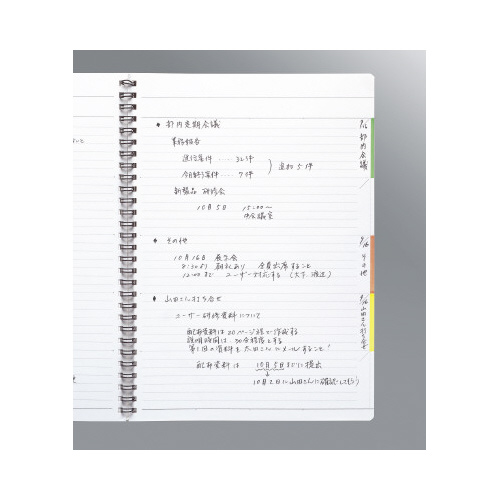 ◆ 部内定期会議
業務報告
進行案件 ····· 32件
今日終了案件 ···· 7件
追加 5件
新製品 研修会
10月5日 15:00〜
中会議室
◆ その他
10月16日 展示会
8:30より 朝礼あり 全員出席すること
12:00まで ユーザー対応する (大下、渡辺)
◆ 山田さん打ち合せ
ユーザー研修資料について
配布資料は20ページ程で作成する
説明時間は30分程度とする
第1回の資料を太田さんにメールすること!
配布資料は 10月5日までに提出
10月2日に山田さんに確認して行う
9/16 部内会議
9/16 その他
9/16 山田さん打ち合せ